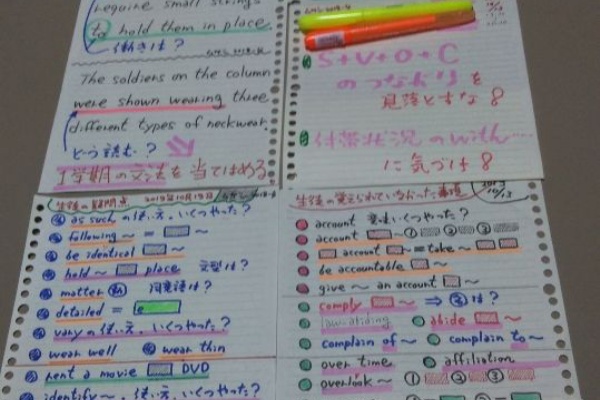 require small strings
to hold them in place.
働きは？
The soldiers on the column
were shown wearing three
different types of neckwear.
どう読む？
1学期の文法を当てはめる
S+V+O+C
のつながりを
見落とすな!
付帯状況のwith....
に気づけ!
生徒の疑問点 2013年10月13日
as suchの使い方、いくつやった？
following ~ = ~
be identical ~
hold ~ place 文型は？
matter 動 同意語は？
detailed = e
varyの使い方、いくつやった？
wear well wear thin
rent a movie DVD
identify~、使い方、いくつやった？
生徒の覚えられていなかった事項 2013 10/13
account 意味いくつやった？
account ~ ① ② ③
account ~ = take ~
be accountable ~
give ~ an account ~
comply ~ ⇒ ③は？
law-abiding abide ~
complain of ~ complain to ~
over time affiliation
overlook ~ ① ② ③